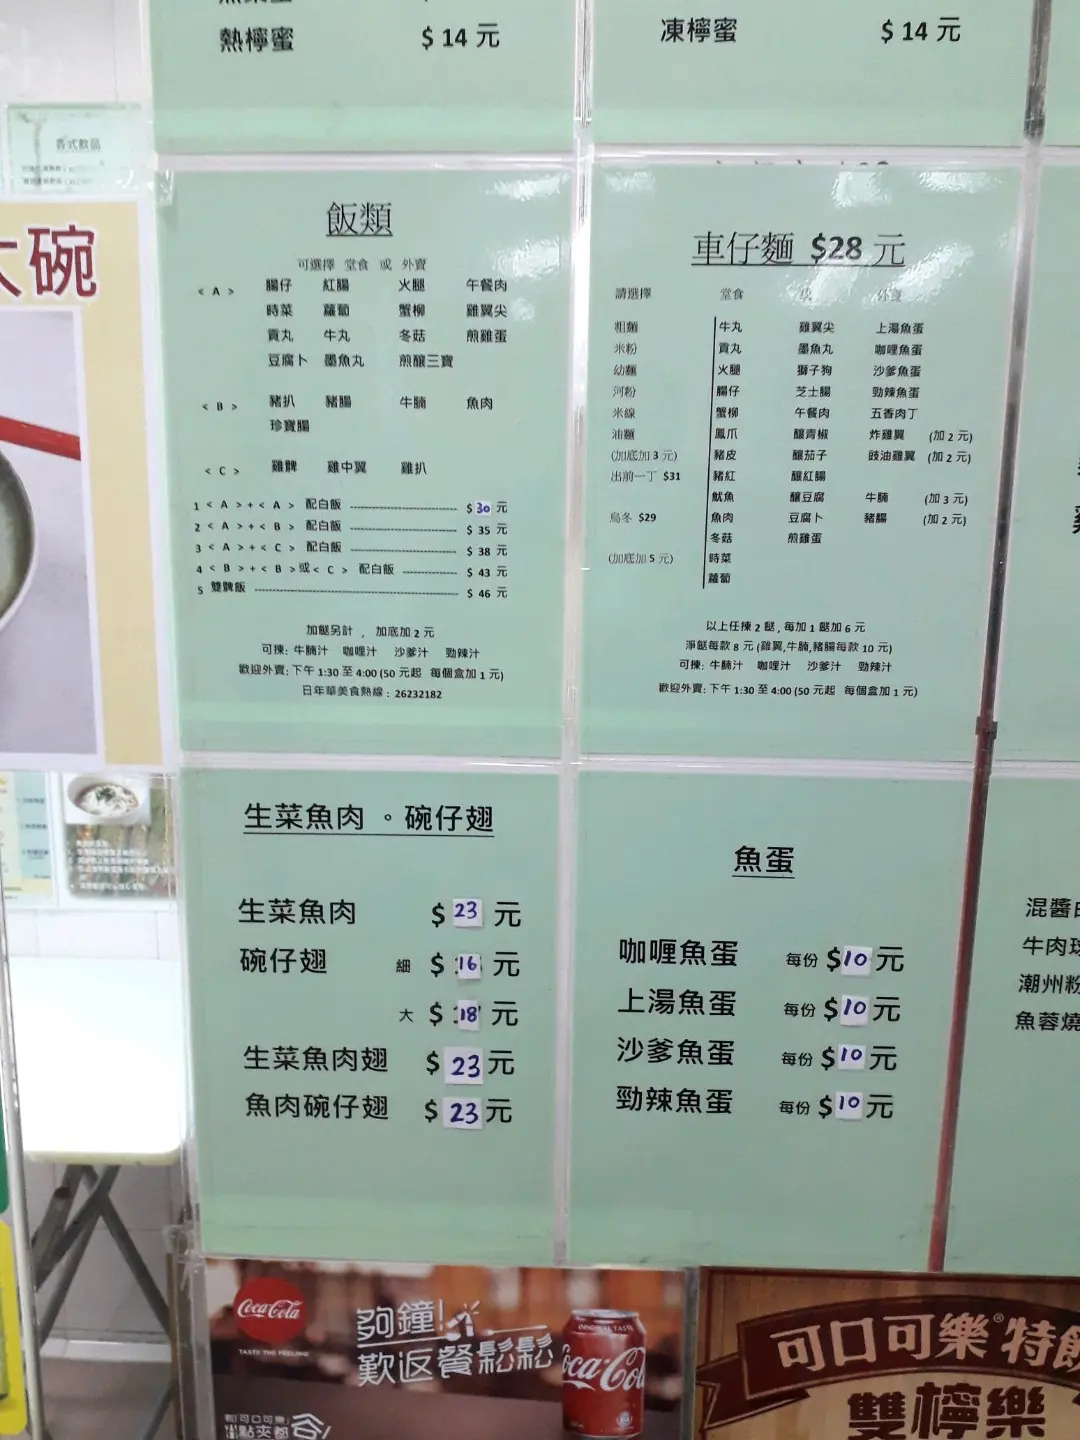 熱檸蜜 $ 14 元
凍檸蜜 $ 14 元
香式飲品
大碗
飯類
可選擇 堂食 或 外賣
< A > 腸仔 紅腸 火腿 午餐肉
時菜 蘿蔔 蟹柳 雞翼尖
貢丸 牛丸 冬菇 煎雞蛋
豆腐卜 墨魚丸 煎釀三寶
< B > 豬扒 豬腸 牛腩 魚肉
珍寶腸
< C > 雞髀 雞中翼 雞扒
1 < A > + < A > 配白飯 $ 30 元
2 < A > + < B > 配白飯 $ 35 元
3 < A > + < C > 配白飯 $ 38 元
4 < B > + < B > 或 < C > 配白飯 $ 43 元
5 雙髀飯 $ 46 元
加餸另計 , 加底加 2 元
可揀: 牛腩汁 咖喱汁 沙爹汁 勁辣汁
歡迎外賣: 下午 1:30 至 4:00 (50 元起 每個盒加 1 元)
日年華美食熱線 : 26232182
車仔麵 $28 元
請選擇 堂食 或 外賣
粗麵 牛丸 雞翼尖 上湯魚蛋
米粉 貢丸 墨魚丸 咖喱魚蛋
幼麵 火腿 獅子狗 沙爹魚蛋
河粉 腸仔 芝士腸 勁辣魚蛋
米線 蟹柳 午餐肉 五香肉丁
油麵 鳳爪 釀青椒 炸雞翼 (加 2 元)
(加底加 3 元) 豬皮 釀茄子 豉油雞翼 (加 2 元)
出前一丁 $31 豬紅 釀紅腸
魷魚 釀豆腐 牛腩 (加 3 元)
烏冬 $29 魚肉 豆腐卜 豬腸 (加 2 元)
冬菇 煎雞蛋
(加底加 5 元) 時菜
蘿蔔
以上任揀 2 餸 , 每加 1 餸加 6 元
淨餸每款 8 元 (雞翼,牛腩,豬腸每款 10 元)
可揀: 牛腩汁 咖喱汁 沙爹汁 勁辣汁
歡迎外賣: 下午 1:30 至 4:00 (50 元起 每個盒加 1 元)
生菜魚肉 。碗仔翅
生菜魚肉 $ 23 元
碗仔翅 細 $ 16 元
大 $ 18 元
生菜魚肉翅 $ 23 元
魚肉碗仔翅 $ 23 元
魚蛋
咖喱魚蛋 每份 $10 元
上湯魚蛋 每份 $10 元
沙爹魚蛋 每份 $10 元
勁辣魚蛋 每份 $10 元
混醬
牛肉球
潮州粉
魚蓉燒
Coca-Cola
TASTE THE FEELING
夠鐘!
歎返餐鬆鬆
ORIGINAL TASTE
Coca-Cola
可口可樂® 特飲
雙檸樂